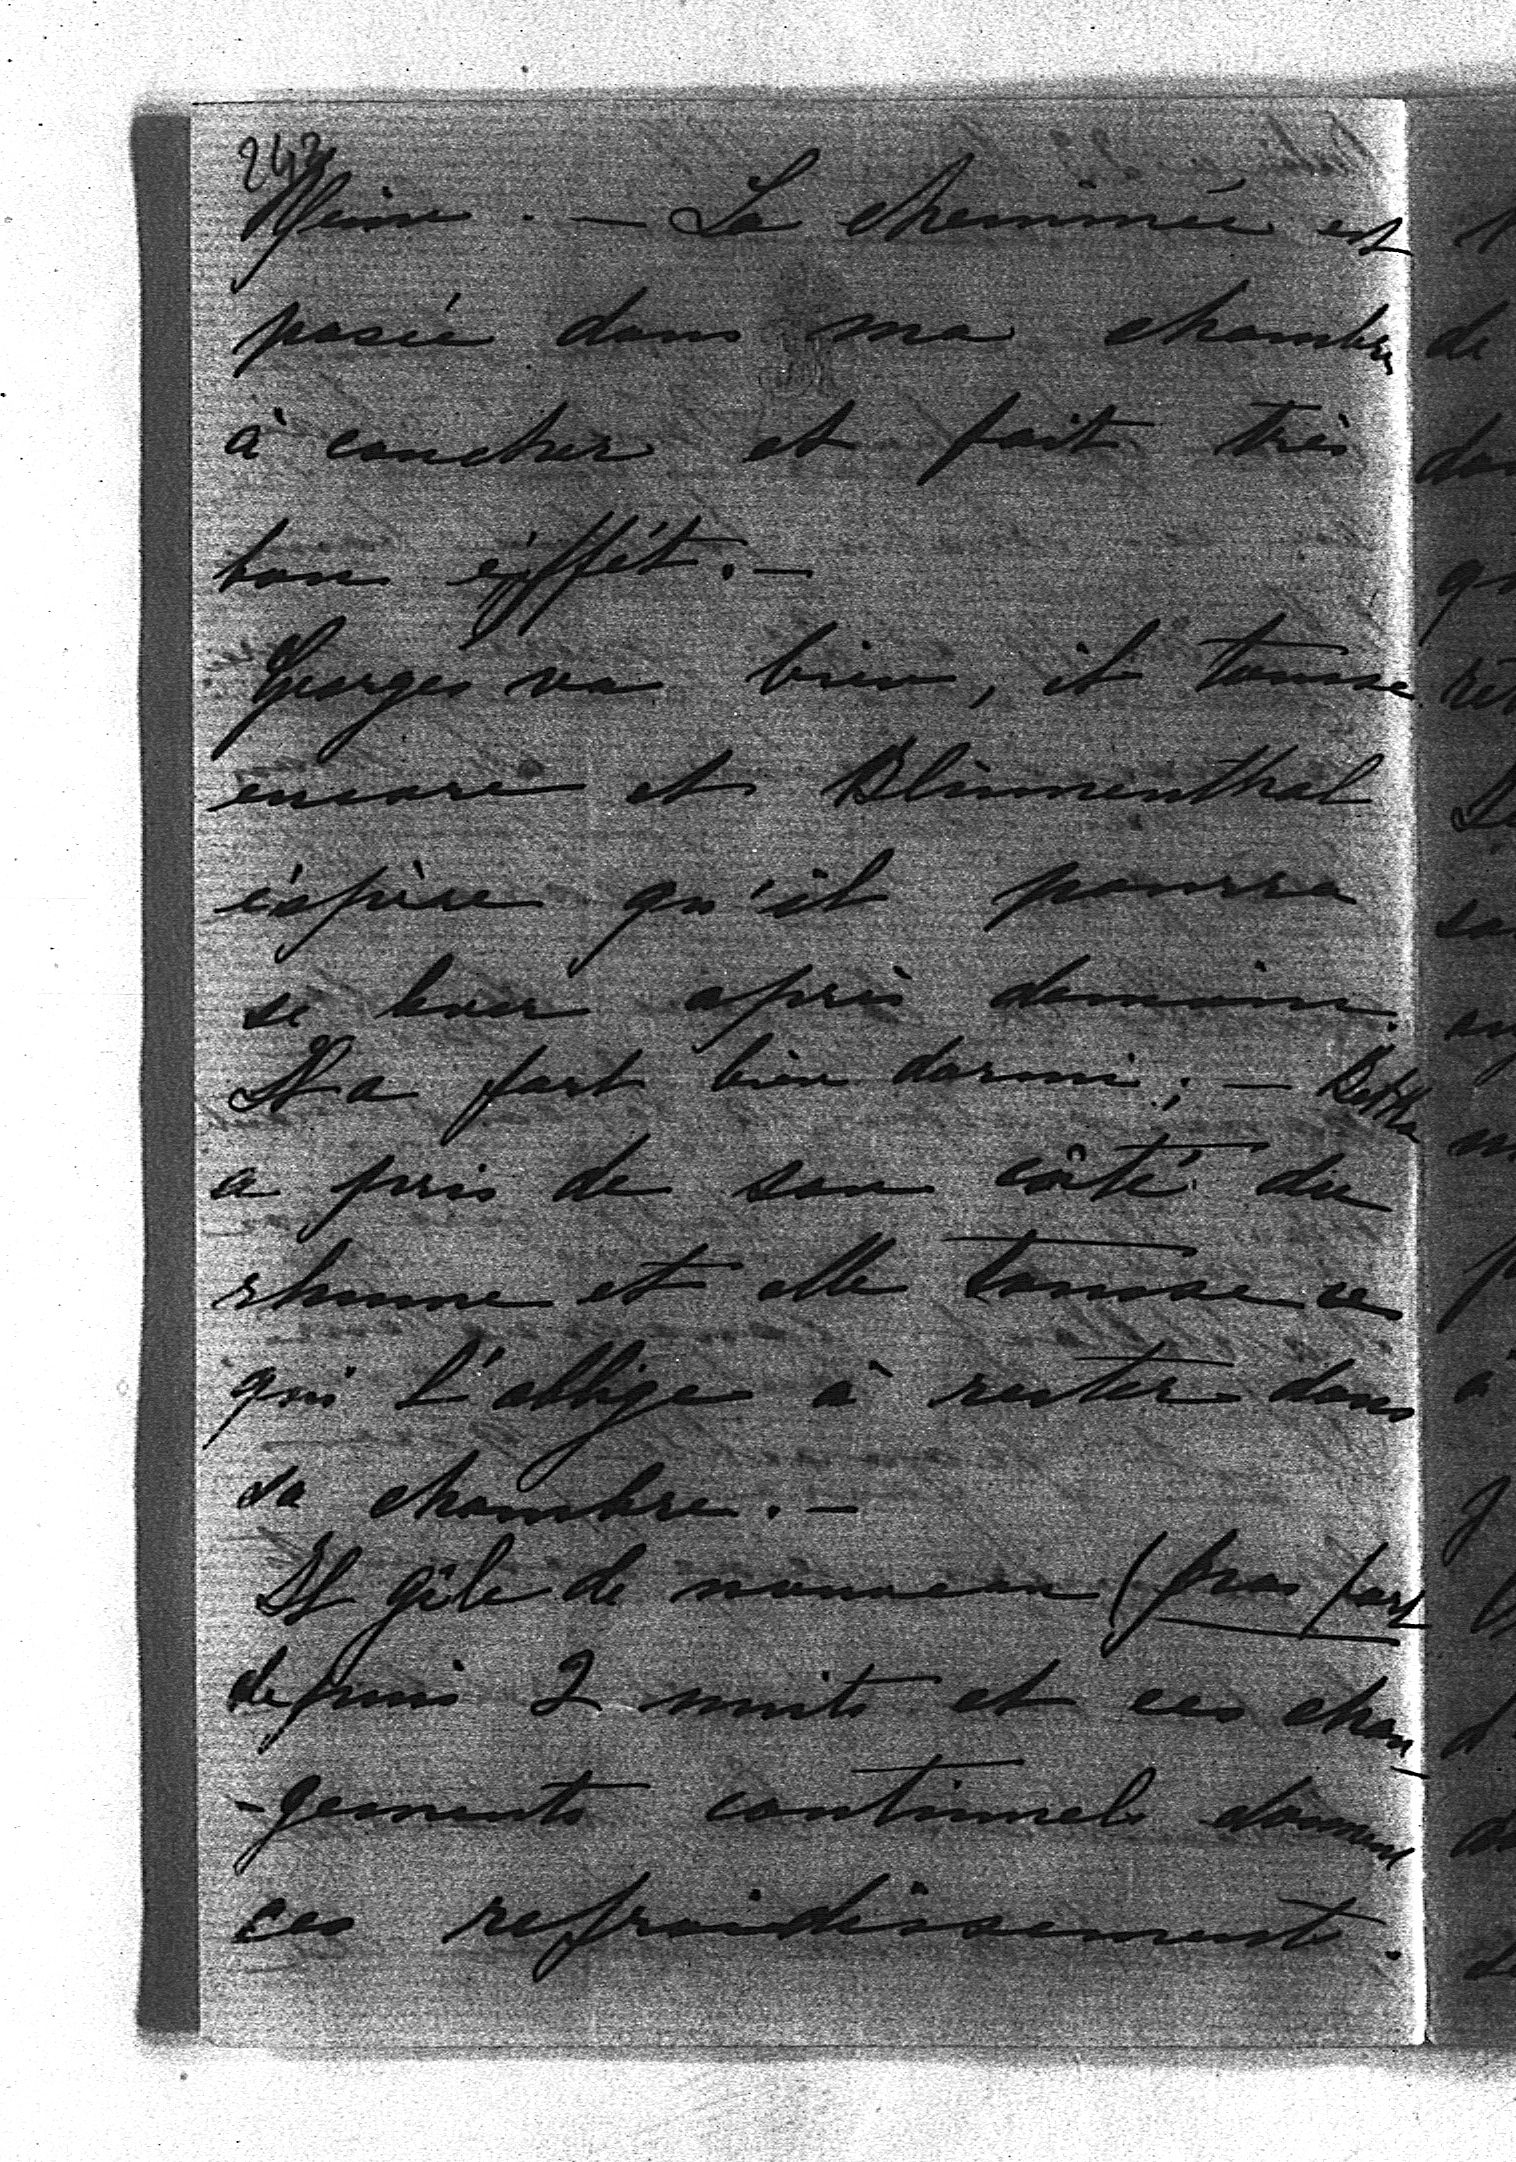 243
Reine. — La cheminée est
posée dans ma chambre
à coucher et fait très
bon éffét. —
Georges va bien, il tousse
encore et Blumenthal
éspère qu'il pourra
se lever après demain.
Il a fort bien dormi; —
a pris de son côté du
rhume et elle tousse ce
qui l'obblige à rester dans
sa chambre. —
Il gèle de nouveau (pas fort
depuis 2 nuits et ces chan
-gements continuels donnent
ces refroidissements.